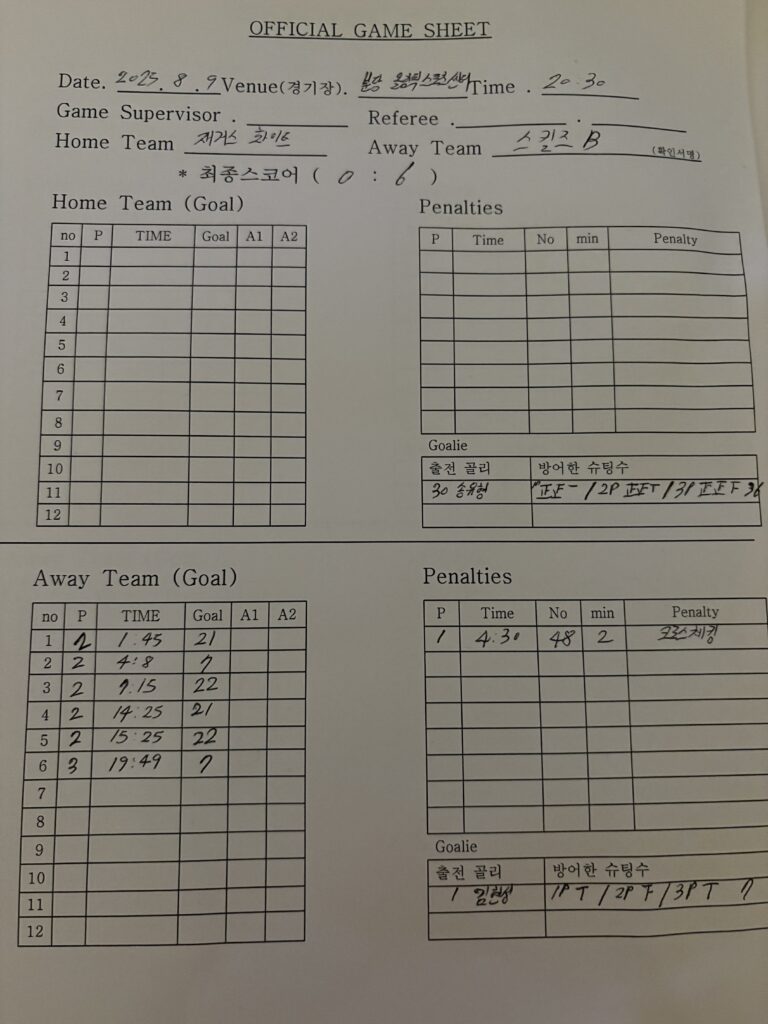 OFFICIAL GAME SHEET
Date. 2025 . 8 . 9 Venue(경기장). 분당 올림픽스포츠센터 Time . 20:30
Game Supervisor . Referee . .
Home Team 재거스 화이트 Away Team 스킬즈 B (확인서명)
* 최종스코어 ( 0 : 6 )
Home Team (Goal)
no P TIME Goal A1 A2
1
2
3
4
5
6
7
8
9
10
11
12
Penalties
P Time No min Penalty
Goalie
출전 골리 방어한 슈팅수
30 송유형 正正一 / 2P 正正T / 3P 正正F 36
Away Team (Goal)
no P TIME Goal A1 A2
1 2 1:45 21
2 2 4:8 7
3 2 9:15 22
4 2 14:25 21
5 2 15:25 22
6 3 19:49 7
7
8
9
10
11
12
Penalties
P Time No min Penalty
1 4:30 48 2 크로스체킹
Goalie
출전 골리 방어한 슈팅수
1 1P T / 2P F / 3P T 7